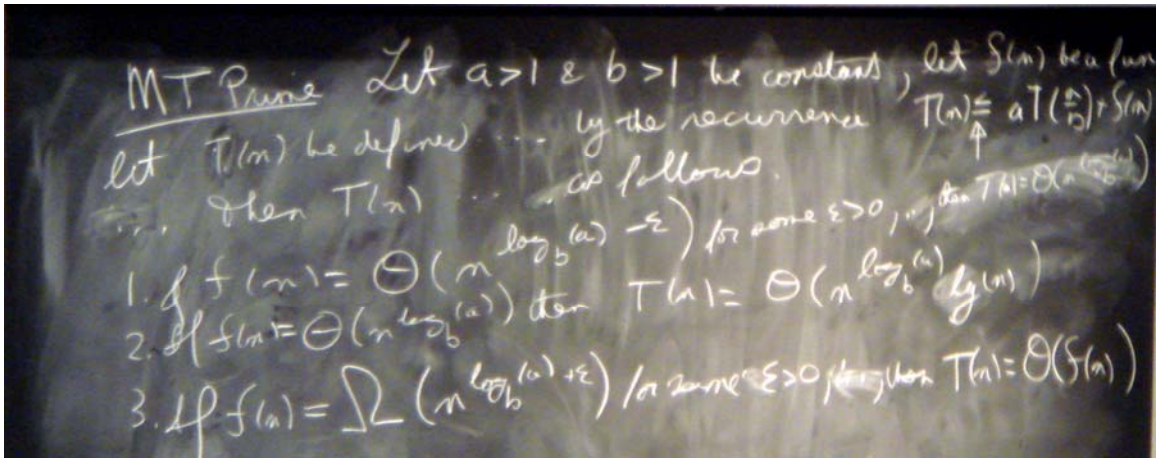 MT Prime Let a>1 & b>1 be constant, let f(n) be a fun
let T(n) be defined ... by the recurrence T(n) ≤ aT(n/b)+f(n)
.... then T(n) .... as follows. ↑
1. If f(n)= Θ(n^{log_b(a)-ε}) for some ε>0, .., then T(n)=Θ(n^{log_b(a)})
2. If f(n)=Θ(n^{log_b(a)}) then T(n)= Θ(n^{log_b(a)} lg(n))
3. If f(n)= Ω(n^{log_b(a)+ε}) for some ε>0, then T(n)=Θ(f(n))